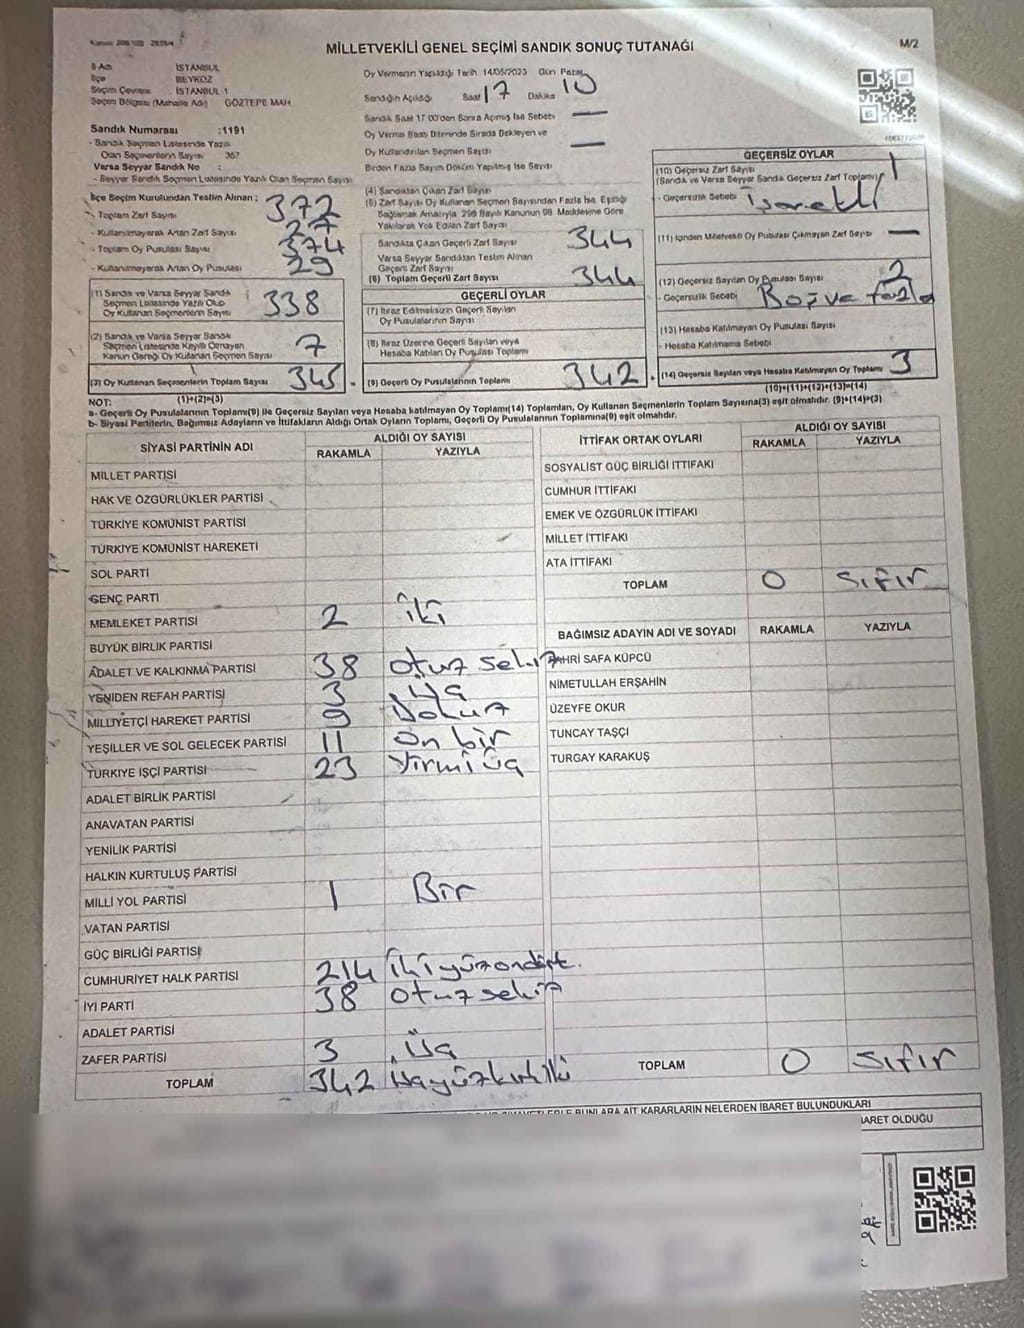 MİLLETVEKİLİ GENEL SEÇİMİ SANDIK SONUÇ TUTANAĞI
M/2
İl Adı İSTANBUL
İlçe BEYKOZ
Seçim Çevresi İSTANBUL-1
Seçim Bölgesi (Mahalle Adı) GÖZTEPE MAH
Oy Vermenin Yapıldığı Tarih 14/05/2023 Gün Pazar
Sandığın Açıldığı Saat 17 Dakika 10
Sandık Saat 17.00'den Sonra Açılmış İse Sebebi —
Oy Verme Saati Bitiminde Sırada Bekleyen ve
Oy Kullandırılan Seçmen Sayısı —
Birden Fazla Sayım Döküm Yapılmış İse Sayısı
Sandık Numarası :1191
- Sandık Seçmen Listesinde Yazılı
Olan Seçmenlerin Sayısı 367
Varsa Seyyar Sandık No :
- Seyyar Sandık Seçmen Listesinde Yazılı Olan Seçmen Sayısı
İlçe Seçim Kurulundan Teslim Alınan :
- Toplam Zarf Sayısı 372
- Kullanılmayarak Artan Zarf Sayısı 27
- Toplam Oy Pusulası Sayısı 374
- Kullanılmayarak Artan Oy Pusulası 29
(1) Sandık ve Varsa Seyyar Sandık
Seçmen Listesinde Yazılı Olup
Oy Kullanan Seçmenlerin Sayısı 338
(2) Sandık ve Varsa Seyyar Sandık
Seçmen Listesinde Kayıtlı Olmayan
Kanun Gereği Oy Kullanan Seçmen Sayısı 7
(3) Oy Kullanan Seçmenlerin Toplam Sayısı 345 =
(1)+(2)=(3)
(4) Sandıktan Çıkan Zarf Sayısı
(5) Zarf Sayısı Oy Kullanan Seçmen Sayısından Fazla İse, Eşitliği
Sağlamak Amacıyla 298 Sayılı Kanunun 98. Maddesine Göre
Yakılarak Yok Edilen Zarf Sayısı
Sandıkta Çıkan Geçerli Zarf Sayısı 344
Varsa Seyyar Sandıktan Teslim Alınan
Geçerli Zarf Sayısı
(6) Toplam Geçerli Zarf Sayısı 344
GEÇERLİ OYLAR
(7) İtiraz Edilmeksizin Geçerli Sayılan
Oy Pusulalarının Sayısı
(8) İtiraz Üzerine Geçerli Sayılan veya
Hesaba Katılan Oy Pusulası Toplamı
(9) Geçerli Oy Pusulalarının Toplamı 342 +
GEÇERSİZ OYLAR
(10) Geçersiz Zarf Sayısı
(Sandık ve Varsa Seyyar Sandık Geçersiz Zarf Toplamı) 1
- Geçersizlik Sebebi İşaretli
(11) İçinden Milletvekili Oy Pusulası Çıkmayan Zarf Sayısı —
(12) Geçersiz Sayılan Oy Pusulası Sayısı 2
- Geçersizlik Sebebi Boş ve fazla
(13) Hesaba Katılmayan Oy Pusulası Sayısı
- Hesaba Katılmama Sebebi
(14) Geçersiz Sayılan veya Hesaba Katılmayan Oy Toplamı 3
(10)+(11)+(12)+(13)=(14)
NOT:
a- Geçerli Oy Pusulalarının Toplamı(9) ile Geçersiz Sayılan veya Hesaba katılmayan Oy Toplamı(14) Toplamları, Oy Kullanan Seçmenlerin Toplam Sayısına(3) eşit olmalıdır. (9)+(14)=(3)
b- Siyasi Partilerin, Bağımsız Adayların ve İttifakların Aldığı Ortak Oyların Toplamı, Geçerli Oy Pusulalarının Toplamına(9) eşit olmalıdır.
SİYASİ PARTİNİN ADI ALDIĞI OY SAYISI
RAKAMLA YAZIYLA
MİLLET PARTİSİ
HAK VE ÖZGÜRLÜKLER PARTİSİ
TÜRKİYE KOMÜNİST PARTİSİ
TÜRKİYE KOMÜNİST HAREKETİ
SOL PARTİ
GENÇ PARTİ
MEMLEKET PARTİSİ 2 iki
BÜYÜK BİRLİK PARTİSİ
ADALET VE KALKINMA PARTİSİ 38 otuz sekiz
YENİDEN REFAH PARTİSİ 3 üç
MİLLİYETÇİ HAREKET PARTİSİ 9 Dokuz
YEŞİLLER VE SOL GELECEK PARTİSİ 11 on bir
TÜRKİYE İŞÇİ PARTİSİ 23 Yirmi üç
ADALET BİRLİK PARTİSİ
ANAVATAN PARTİSİ
YENİLİK PARTİSİ
HALKIN KURTULUŞ PARTİSİ
MİLLİ YOL PARTİSİ 1 Bir
VATAN PARTİSİ
GÜÇ BİRLİĞİ PARTİSİ
CUMHURİYET HALK PARTİSİ 214 ikiyüzondört.
İYİ PARTİ 38 otuzsekiz
ADALET PARTİSİ
ZAFER PARTİSİ 3 üç
TOPLAM 342 üçyüzkırkiki
İTTİFAK ORTAK OYLARI ALDIĞI OY SAYISI
RAKAMLA YAZIYLA
SOSYALİST GÜÇ BİRLİĞİ İTTİFAKI
CUMHUR İTTİFAKI
EMEK VE ÖZGÜRLÜK İTTİFAKI
MİLLET İTTİFAKI
ATA İTTİFAKI
TOPLAM 0 sıfır
BAĞIMSIZ ADAYIN ADI VE SOYADI RAKAMLA YAZIYLA
FAHRİ SAFA KÜPCÜ
NİMETULLAH ERŞAHİN
ÜZEYFE OKUR
TUNCAY TAŞÇI
TURGAY KARAKUŞ
TOPLAM 0 sıfır
BUNLARA AİT KARARLARIN NELERDEN İBARET BULUNDUKLARI
İBARET OLDUĞU